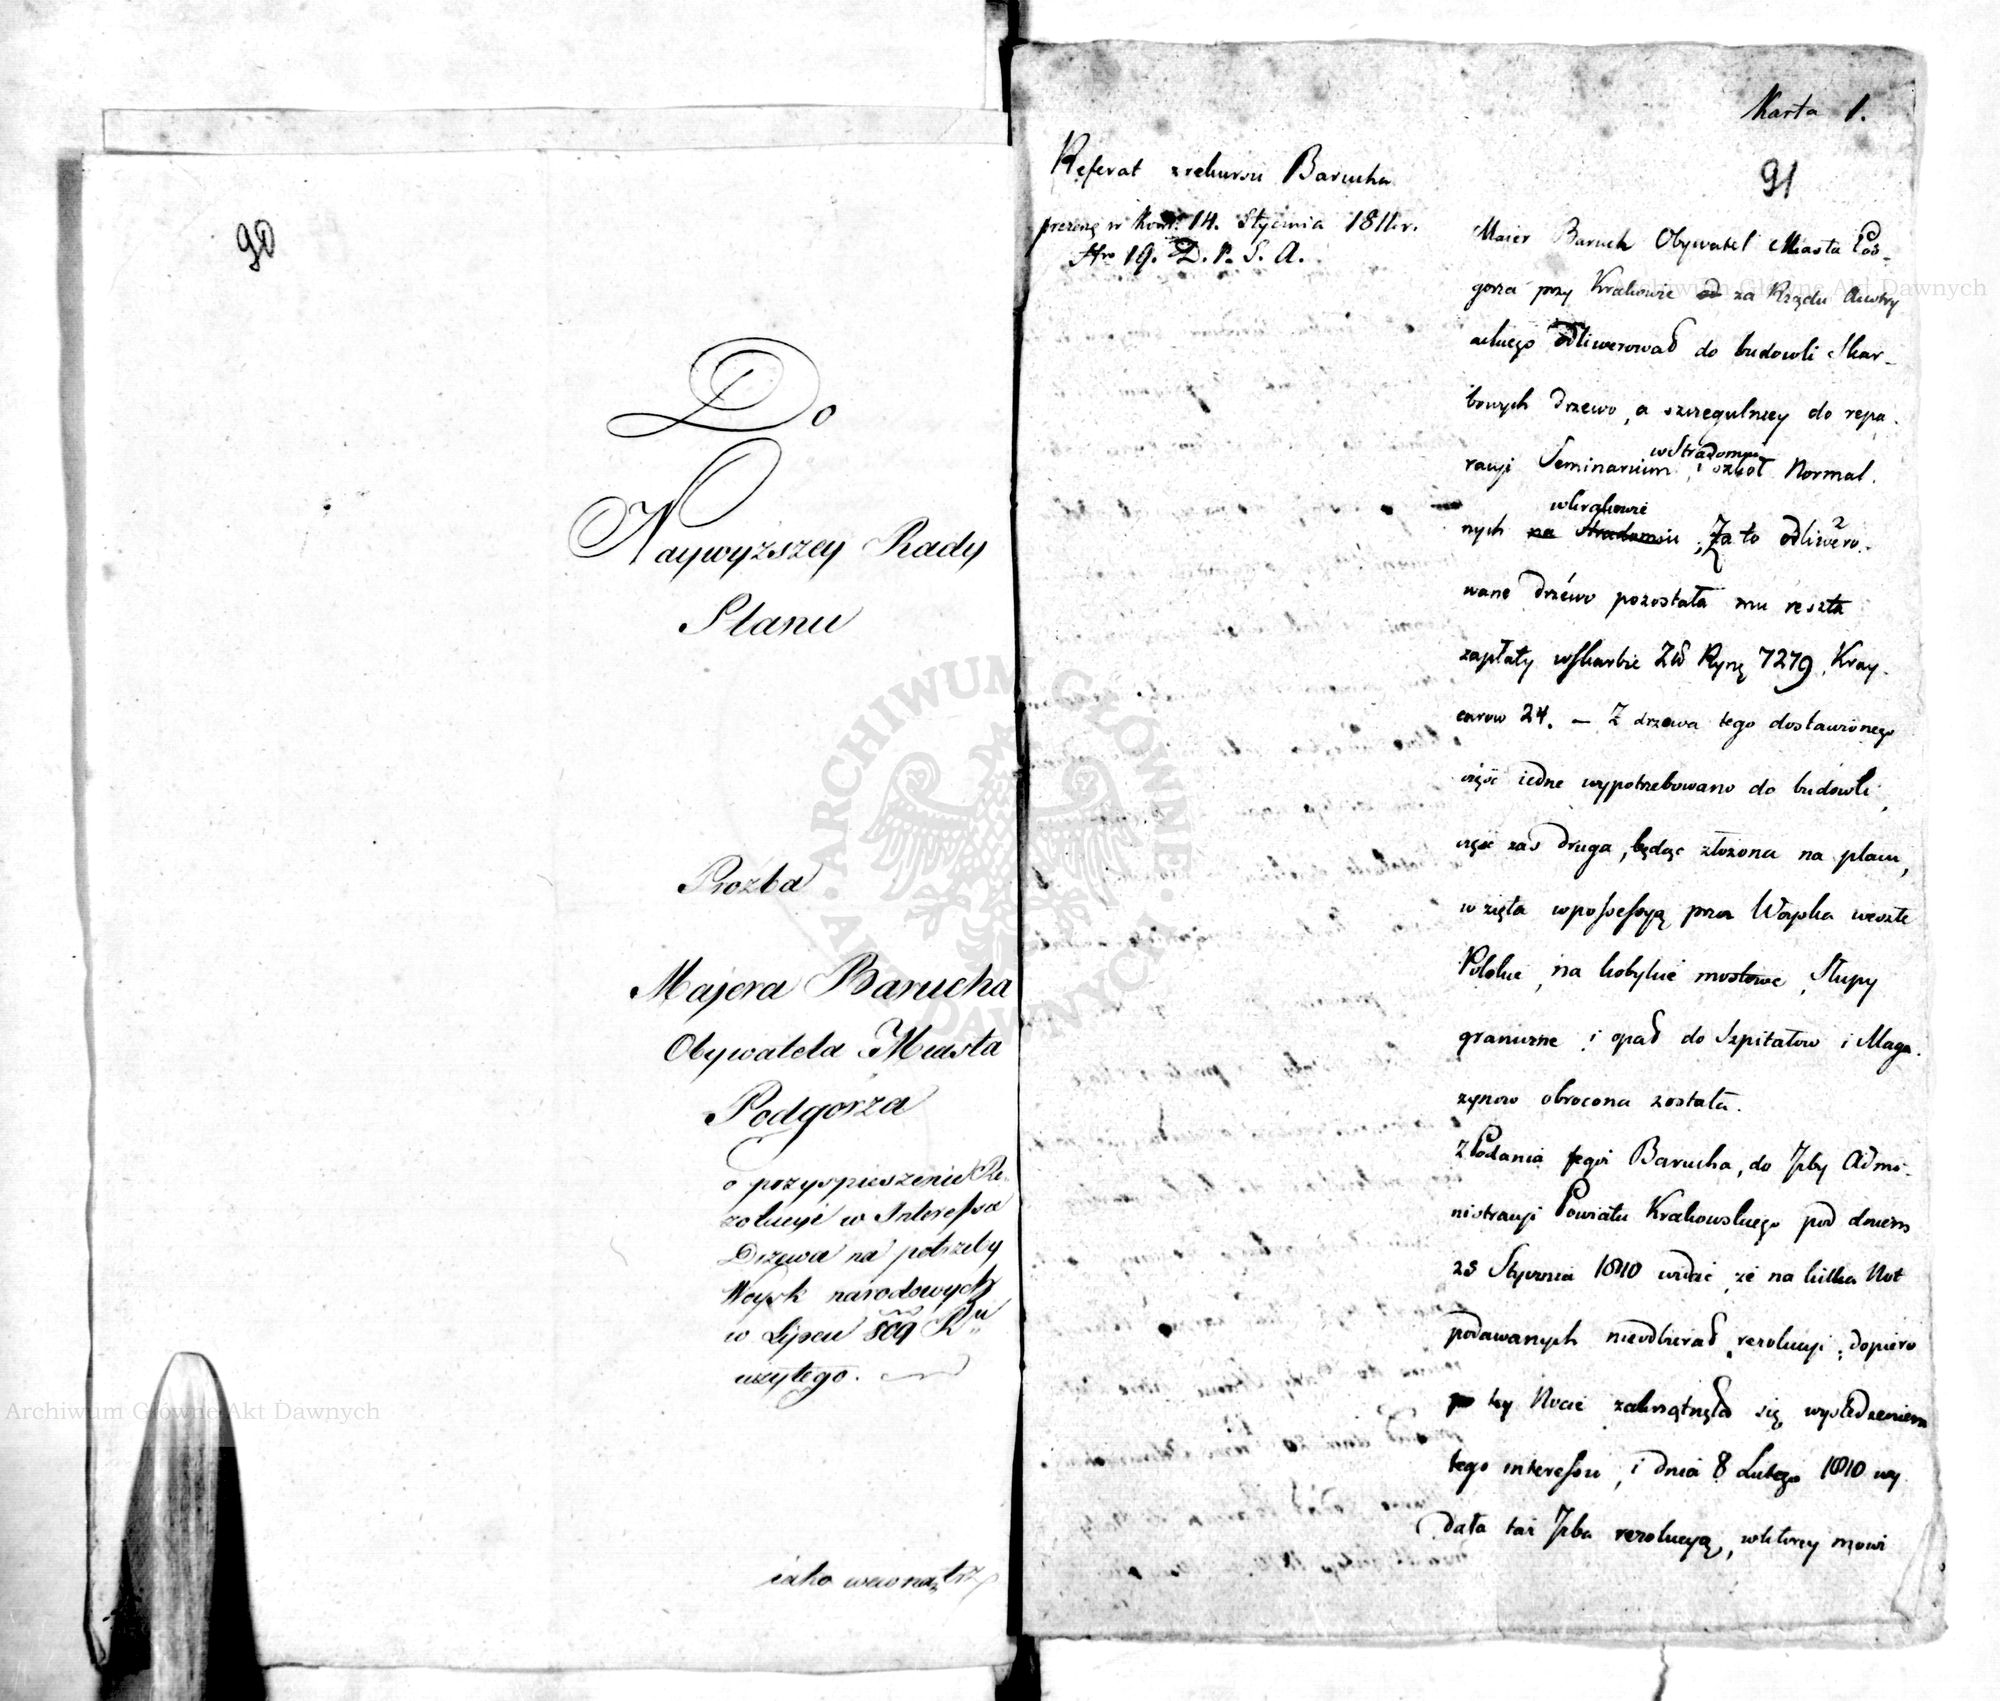 90
Do
Naywyższey Rady
Stanu
Proźba
Majera Barucha
Obywatela Miasta
Podgórza
o przyspieszenie Re-
zolucyi w Interessie
Drzewa na potrzeby
Woysk narodowych
w Lipcu 809 Ru
użytego.
iako wewnątrz
Karta 1.
91
Referat z rekursu Barucha
14. Stycznia 1811 r.
Nro 19. D. P. S. A.
Maier Baruch Obywatel Miasta Pod-
gorza przy Krakowie za Rządu Austry
ackiego odliwerował do budowli Skar-
bowych drzewo, a szczegulniey do repa-
racyi Seminarium w Stradomiu i szkoł Normal-
nych na Stradomiu w Krakowie; Za to odliwero-
wane drzewo pozostała mu reszta
zapłaty w Skarbie Zł Ryn: 7279, Kray-
carow 24. — Z drzewa tego dostawionego
część iedne wypotrzebowano do budowli,
część zaś druga, będąc złożona na placu,
wzięta w possessyą przez Woyska weszłe
Polskie, na kobylice mostowe, Słupy
graniczne i opał do Szpitałow i Maga-
zynow obrocona została.
Z Podania tegoż Barucha, do Izby Admi-
nistracyi Powiatu Krakowskiego pod dniem
Stycznia 1810 widać, że na kilka Not
podawanych nieodbierał rezolucyi, dopiero
po tey Nocie zakrzątnęła się wyśledzeniem
tego interessu, i dnia 8 Lutego 1810 wy
dała taż Izba rezolucyą, w ktorey mowi
Archiwum Główne Akt Dawnych
Archiwum Główne Akt Dawnych
ARCHIWUM GŁÓWNE AKT DAWNYCH